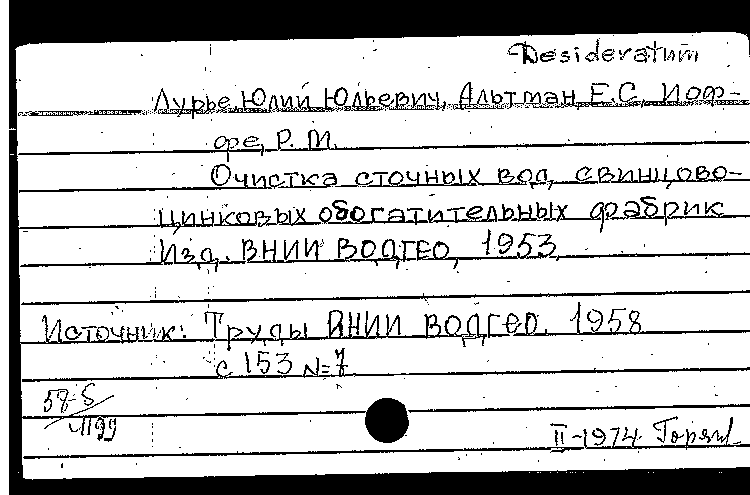 Desideratum
Лурье, Юлий Юльевич, Альтман, Е.С., Иоф-
фе, Р. М.
Очистка сточных вод, свинцово-
цинковых обогатительных фабрик
Изд. ВНИИ ВОДГЕО, 1953
Источник: Труды ВНИИ ВОДГЕО. 1958
с 153 №7
58-5/
II-1974